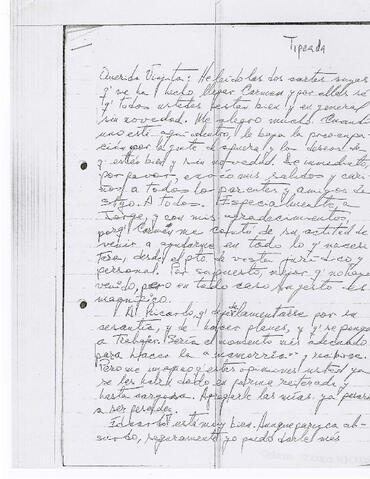 Tipeada
Querida Viejita: He leído las dos cartas suyas
q' me ha hecho llegar Carmen y por ellas sé
q' todos ustedes están bien y en general
sin novedad. Me alegro mucho. Cuando
uno está aquí dentro, le
por la gente de afuera, y los deseos de
q' estén bien y sin novedad. De inmediato,
por favor, envío mis saludos y cari-
ños a todos los parientes y amigos de
Stgo. A todos. Especialmente, a
Jorge, y con mis agradecimientos,
porq' Carmen me contó de su actitud de
venir a ayudarme en todo lo q' necesi-
tara, desde el pto. de vista jurídico y
personal. Por supuesto, mejor q' no haya
venido, pero en todo caso su gesto es
magnífico.
A Ricardo, q' deje de lamentarse por su
cesantía, y de hacer planes, y q' se ponga
a trabajar. Sería el momento más adecuado
para
Pero me imagino q' estas opiniones usted ya
se las habrá dado en forma reiterada y
hasta cargosa. Agregarle las mías ya pasaría
a ser pesadez.
Eduardo está muy bien. Aunque parezca ab-
surdo, seguramente yo puedo darle más